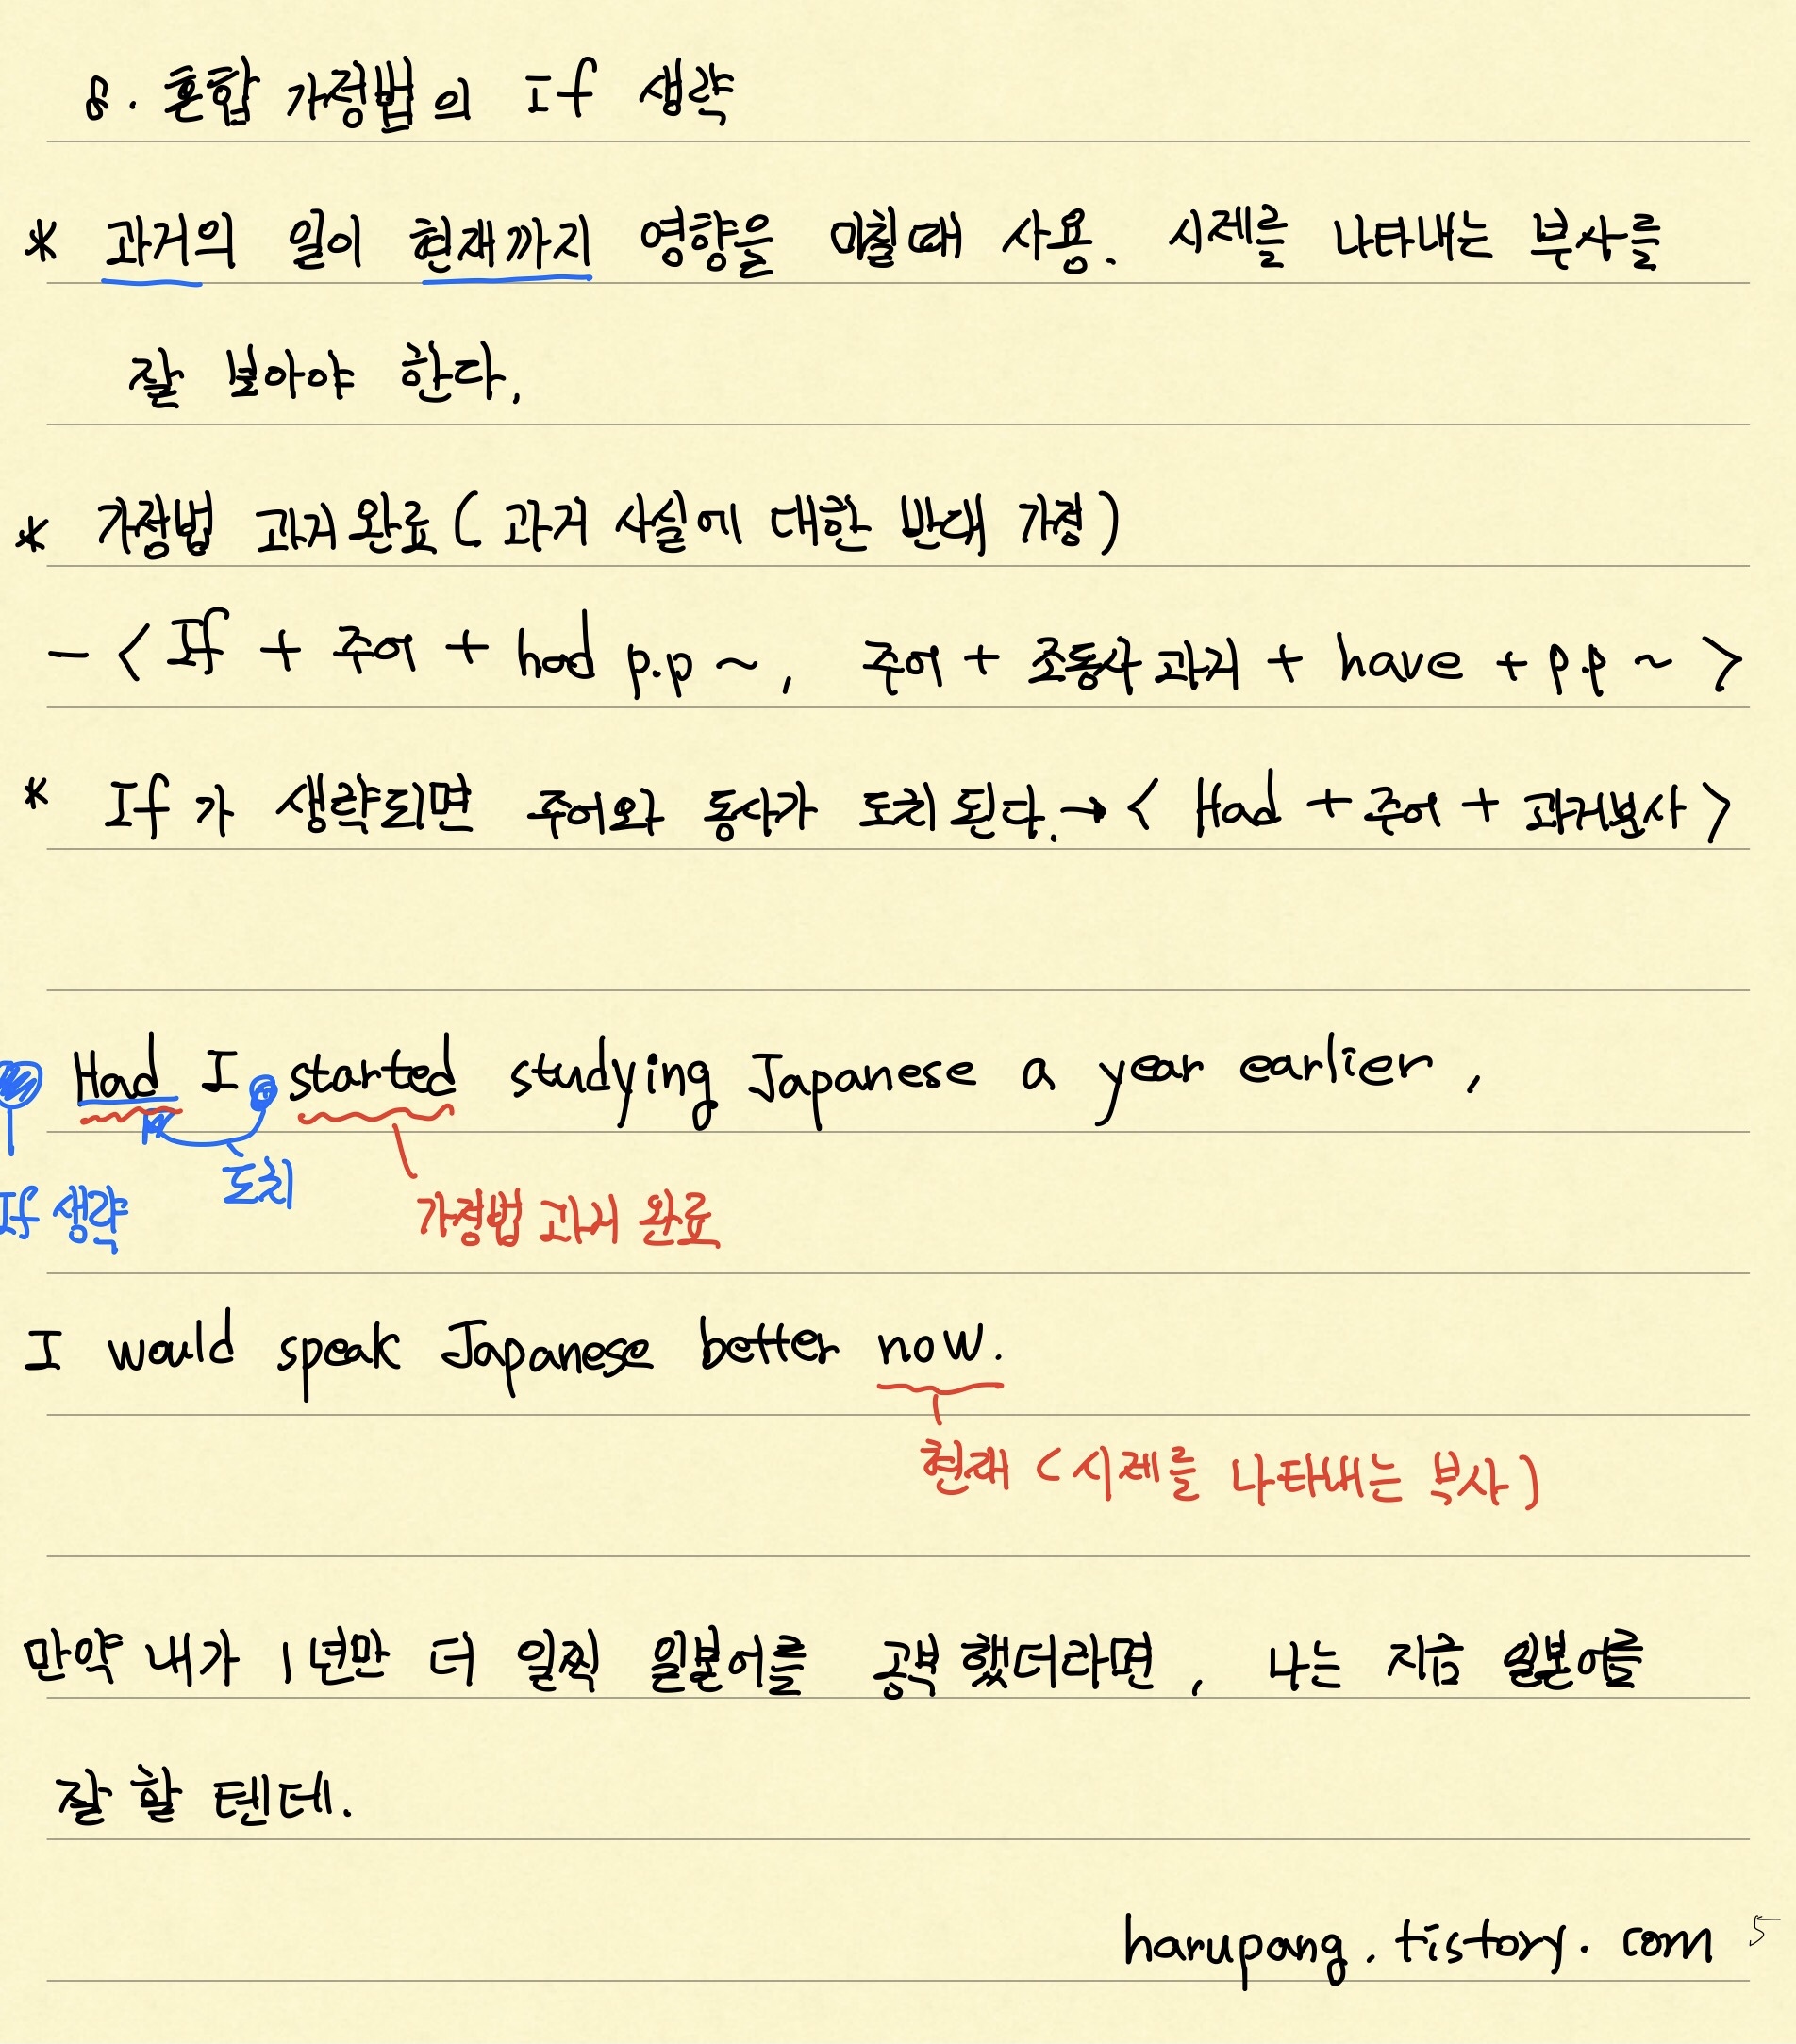 8. 혼합 가정법의 If 생략
* 과거의 일이 현재까지 영향을 미칠때 사용. 시제를 나타내는 부사를
잘 보아야 한다.
* 가정법 과거완료(과거 사실에 대한 반대 가정)
- < If + 주어 + had p.p ~, 주어 + 조동사 과거 + have + p.p ~ >
* If 가 생략되면 주어와 동사가 도치 된다. → < Had + 주어 + 과거분사 >
Had I started studying Japanese a year earlier,
If 생략 도치 가정법 과거 완료
I would speak Japanese better now.
현재 (시제를 나타내는 부사)
만약 내가 1년만 더 일찍 일본어를 공부 했더라면, 나는 지금 일본어를
잘 할 텐데.
harupang.tistory.com 5